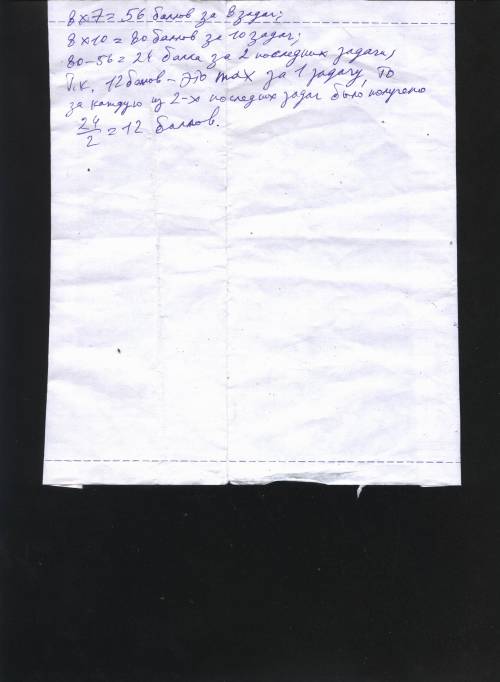 8x7=56 баллов за 8 задач;
8x10=80 баллов за 10 задач;
80-56=24 балла за 2 последних задачи;
Т.к. 12 балов - это max за 1 задачу, то
за каждую из 2-х последних задач было получено
24/2=12 баллов.